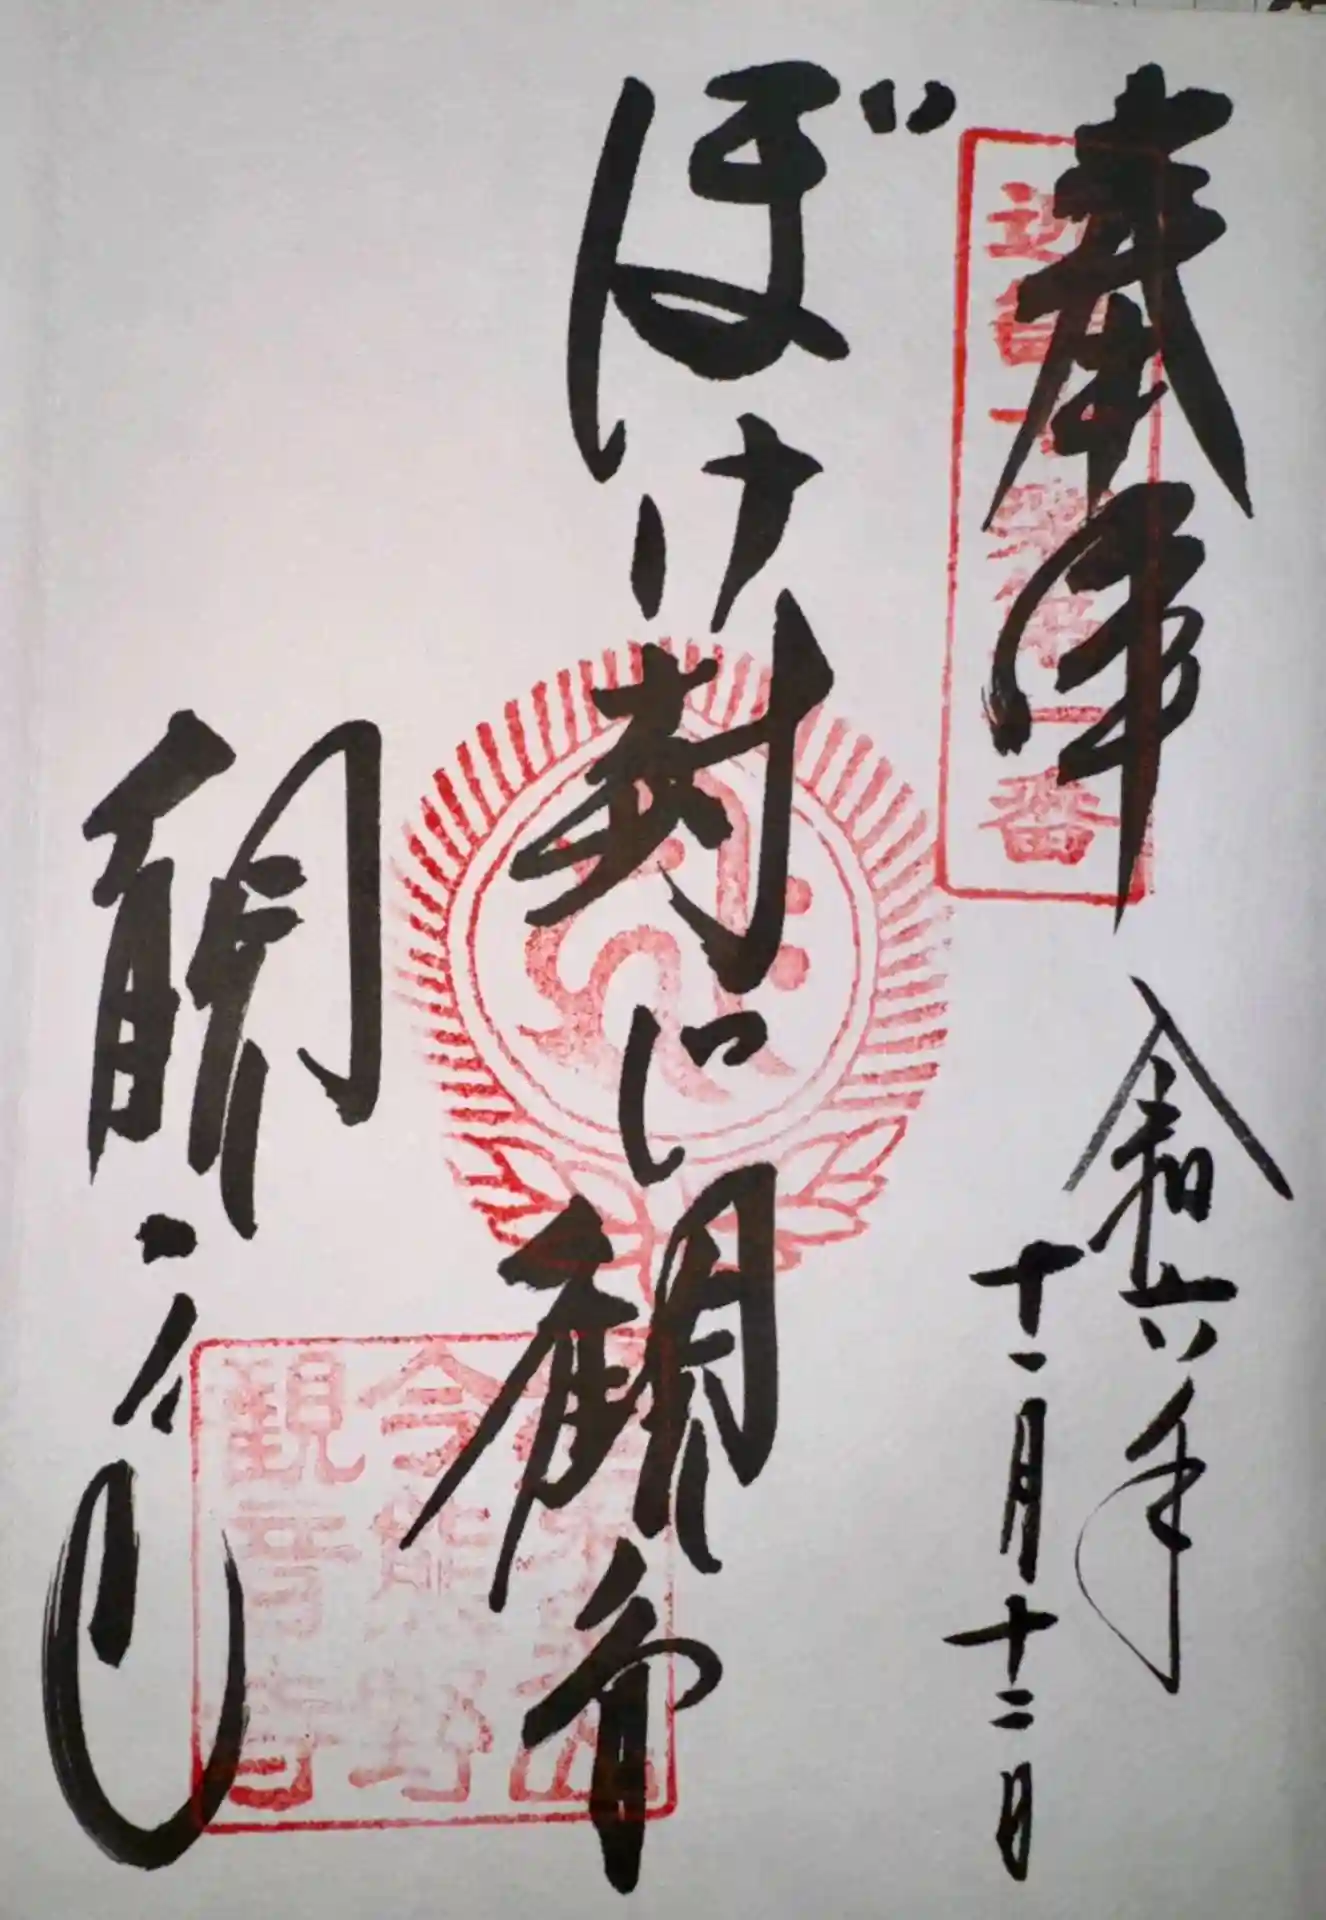 奉拝
近畿十楽第一番
令和六年
十一月十二日
ぼけ封じ観音
今熊野
観音寺
観音寺